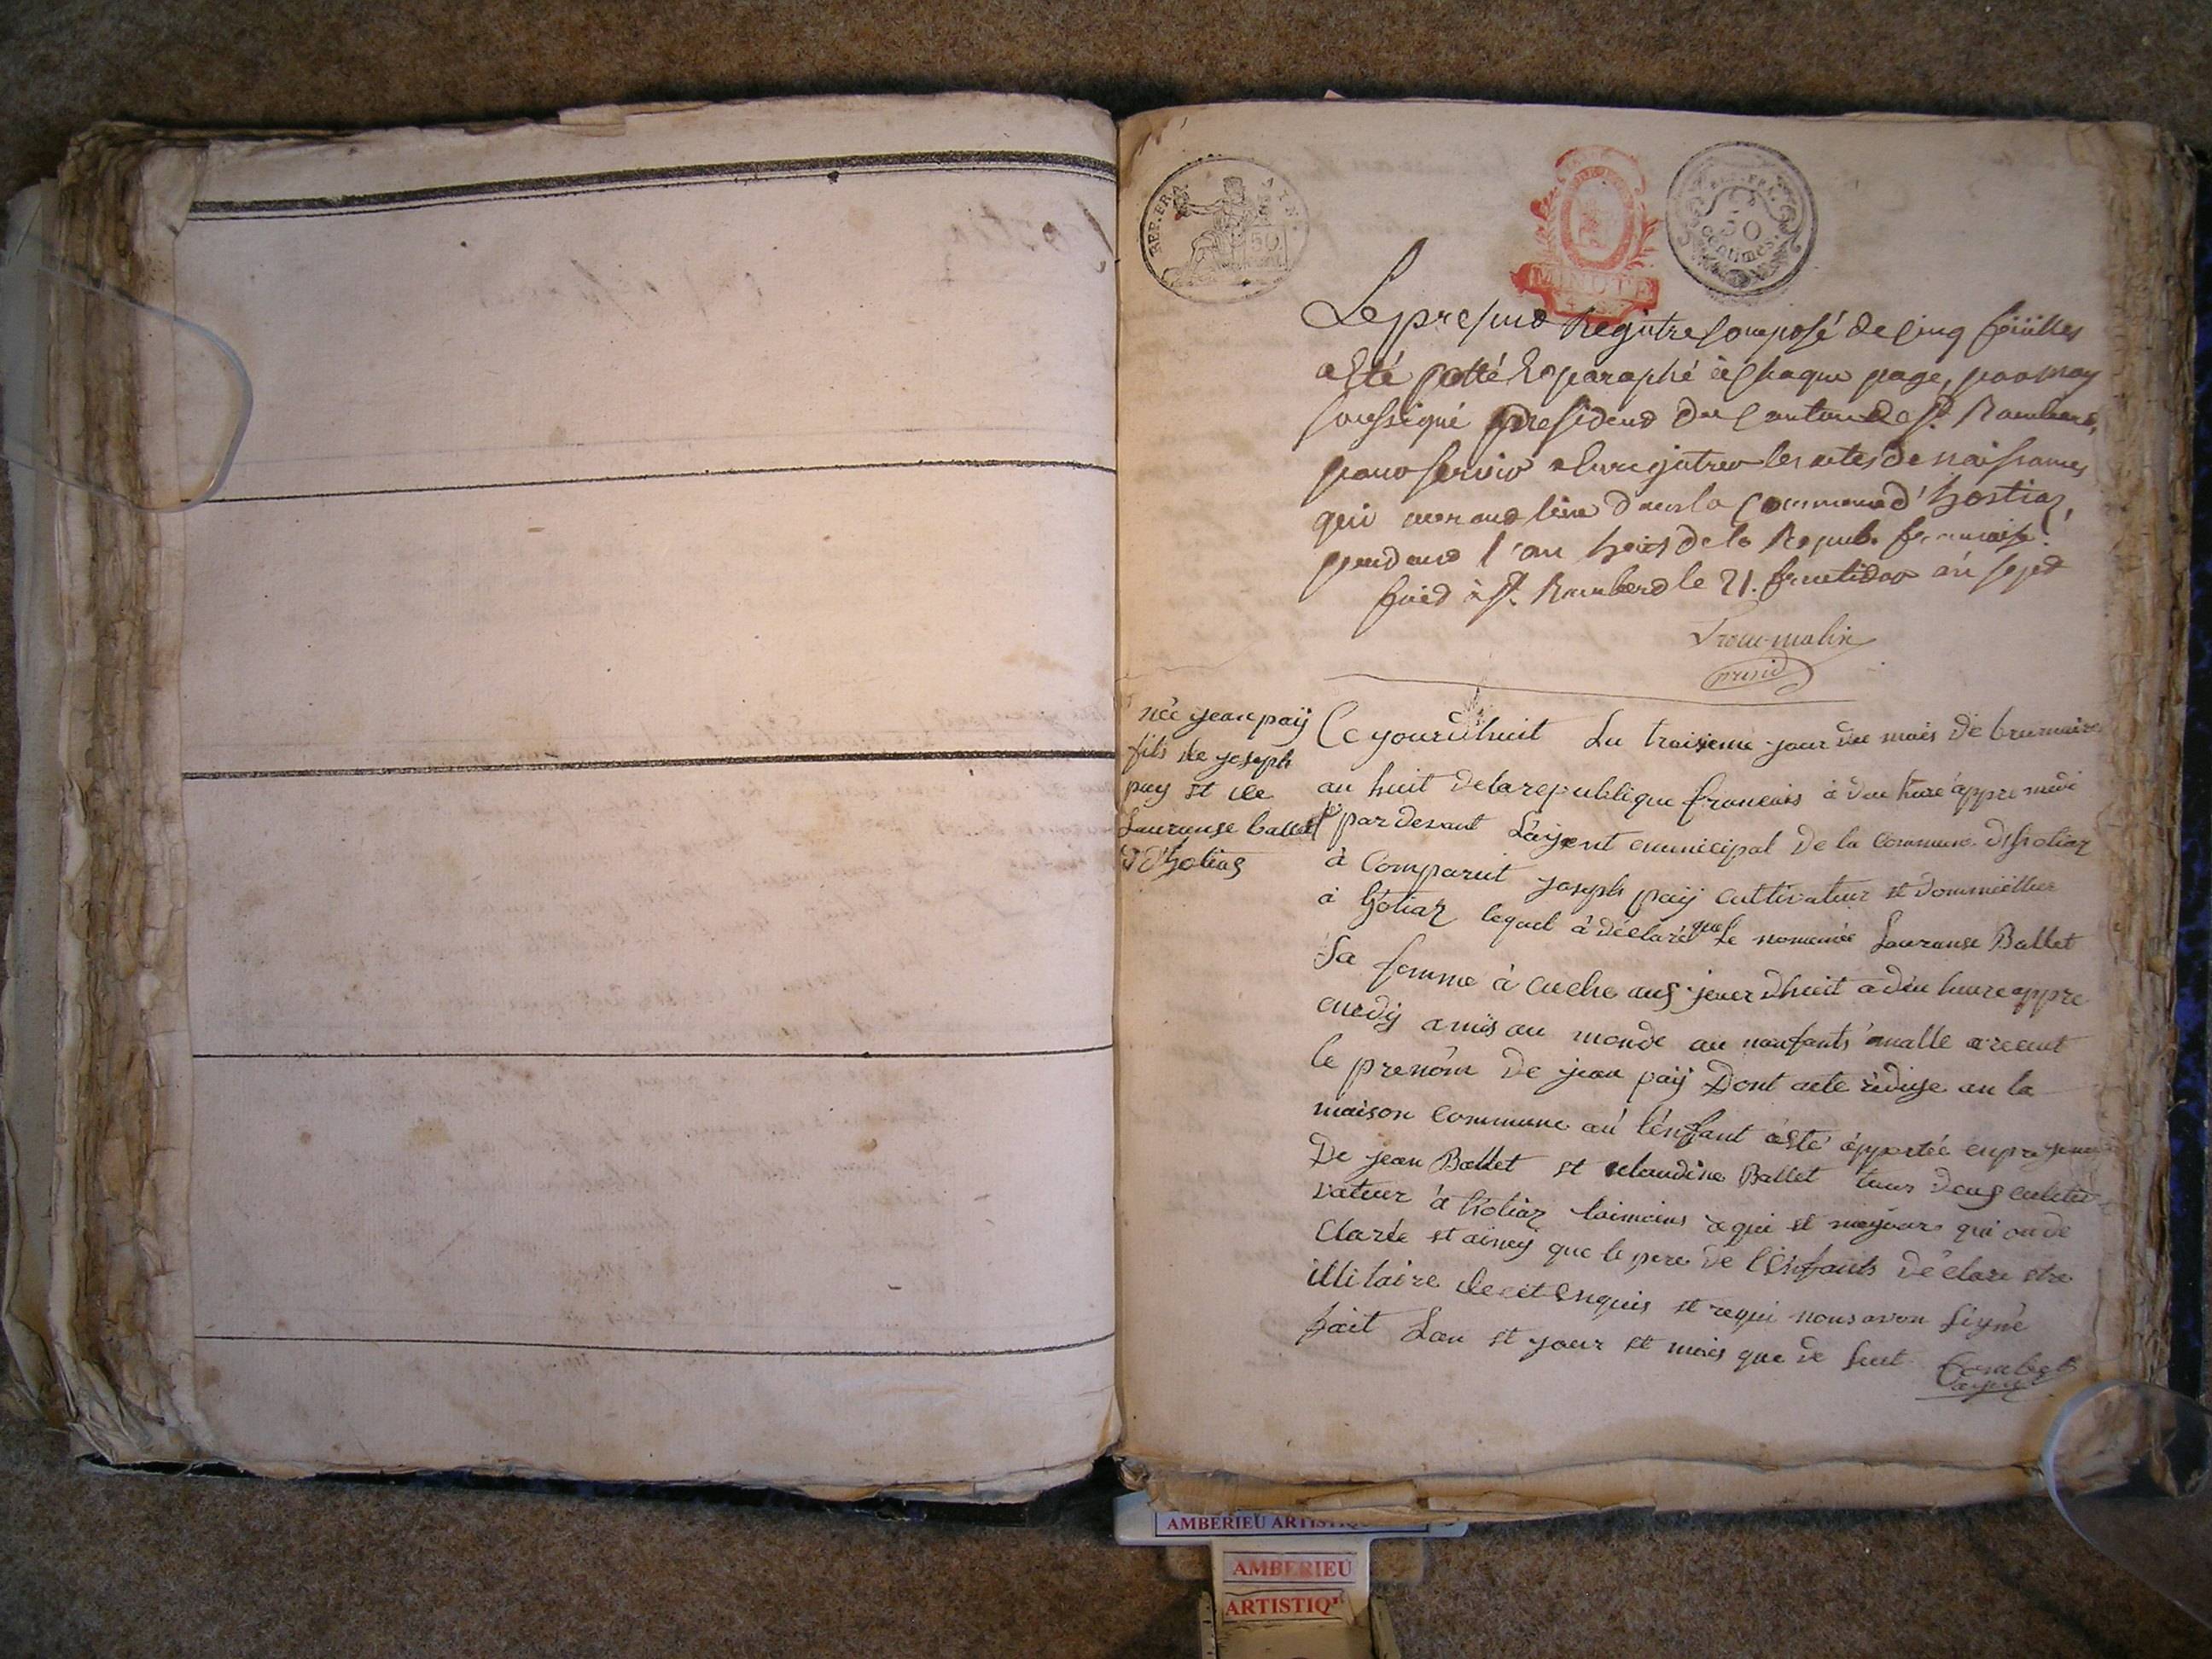 REP. FRA.
AYN.
50
MINUTE
50
centimes
Le present Registre Composé de Cinq feüilles
a Eté Cotté & paraphé à Chaque page, par moy
soussigné president du Canton de St. Rambert,
pour servir a Enregistrer les actes de naissances
qui auront lieu dans la Commune d'hostiaz,
pendant l'an huit de la Repub. francaise.
fait à St. Rambert le 21. fructidor an sept
Trocu-malin
presid
née jean paÿ
fils de joseph
pay et de
Lauranse ballet
D'hotias
Ce yourdhuit Lu troisieme jour du mois de brumaire
an huit de la republique francais à deu hure appre medi
pardevant L'agent municipal de la Commune d'hotiaz
à Comparut joseph paÿ cultivateur et dommicillier
à hotiaz lequel à déclaré que Le nommée Lauranse Ballet
Sa femme à cuche aus jourdhuit a deu hure appre
medÿ a mis au monde au nanfants malle a recut
le prenôm De jean paÿ Dont acte rédige an la
maison commune aú l'énffant àsté àpportée
De jean Ballet et claudine Ballet tous deus culti
vateur à hotiaz taimoins requi et mayour qui on de
clarée et ainsy que le pere de l'Enfants déclare etre
illitaire de cet Enquis et requi nous avon Signé
fait Lan et jour et mois que de sut
AMBERIEU
AMBERIEU
ARTISTIQ